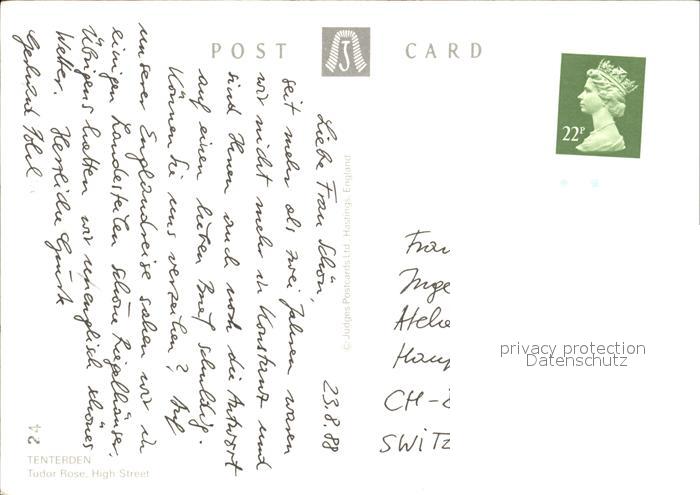 POST CARD
22P
23.8.88
Liebe Frau Schön,
seit mehr als zwei Jahren waren
wir nicht mehr in Konstanz und
sind Ihnen auch noch die Antwort
auf einen lieben Brief schuldig.
Können Sie uns verzeihen? Auf
unserer Englandreise sahen wir in
einigen Landesteilen schöne Riegelhäuser.
Übrigens hatten wir unenglisch schönes
Wetter. Herzliche Grüsse
Gerhard
© Judges Postcards Ltd., Hastings, England
Frau
Inge
CH-
SWITZ
privacy protection
Datenschutz
TENTERDEN
Tudor Rose, High Street